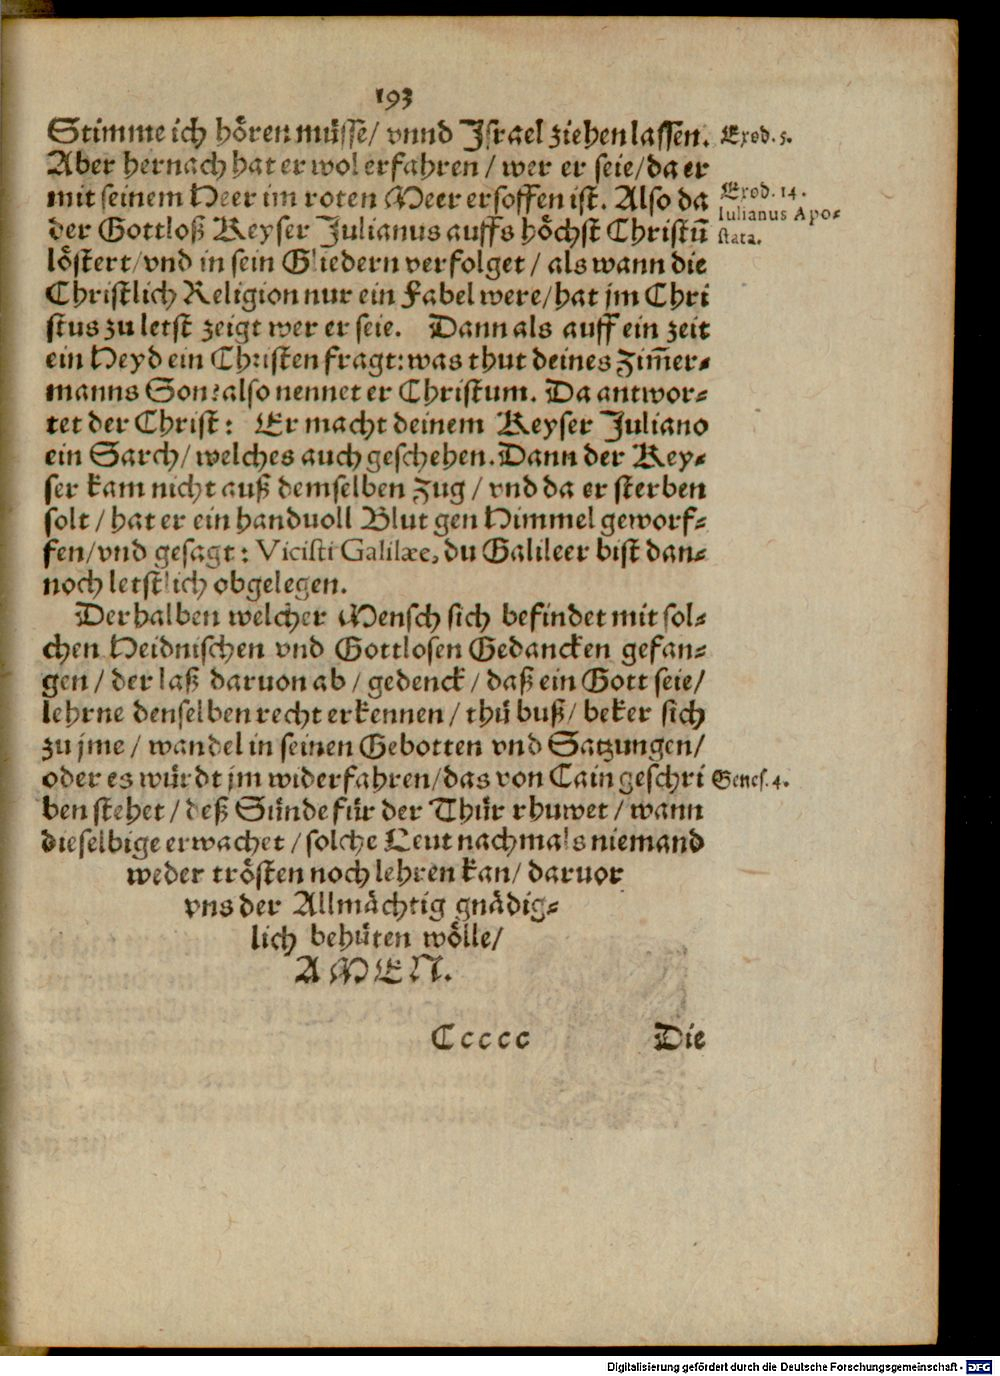 193
Stimme ich hören müsse/ vnnd Israel ziehen lassen. Exod. 5.
Aber hernach hat er wol erfahren / wer er seie/da er
mit seinem Heer im roten Meer ersoffen ist. Also da Exod. 14.
der Gottloß Keyser Julianus auffs höchst Christū Iulianus Apo-
löstert/vnd in sein Gliedern verfolget / als wann die stata.
Christlich Religion nur ein Fabel were/hat jm Chri
stus zu letst zeigt wer er seie. Dann als auff ein zeit
ein Heyd ein Christen fragt: was thut deines Zim̄er-
manns Son? also nennet er Christum. Da antwor-
tet der Christ: Er macht deinem Keyser Juliano
ein Sarch/ welches auch geschehen. Dann der Key-
ser kam nicht auß demselben Zug / vnd da er sterben
solt / hat er ein handuoll Blut gen Himmel geworf-
fen/vnd gesagt: Vicisti Galilæe, du Galileer bist dan-
noch letstlich obgelegen.
Derhalben welcher Mensch sich befindet mit sol-
chen Heidnischen vnd Gottlosen Gedancken gefan-
gen / der laß daruon ab / gedenck / daß ein Gott seie/
lehrne denselben recht erkennen / thů buß/ beker sich
zu jme / wandel in seinen Gebotten vnd Satzungen/
oder es würdt jm widerfahren/das von Cain geschri Genes. 4.
ben stehet / deß Sünde für der Thür rhuwet / wann
dieselbige erwachet / solche Leut nachmals niemand
weder trösten noch lehren kan/ daruor
vns der Allmächtig gnädig-
lich behüten wölle/
AMEN.
Ccccc Die
Digitalisierung gefördert durch die Deutsche Forschungsgemeinschaft - DFG